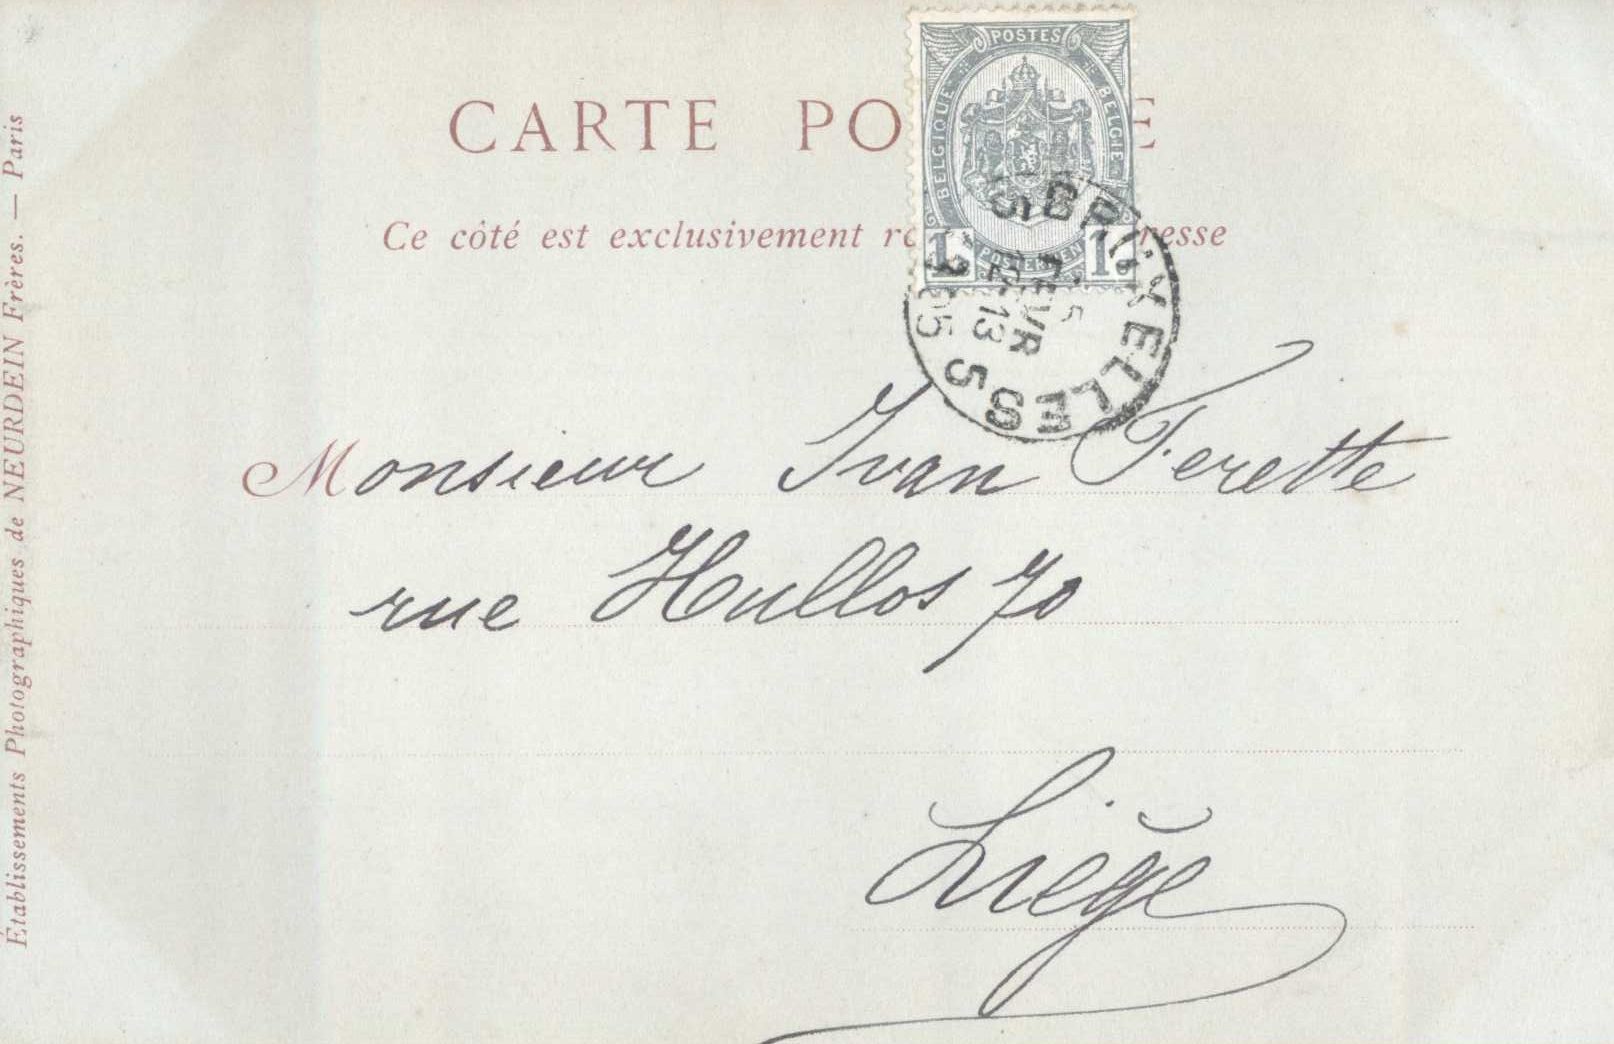 CARTE PO E
Ce côté est exclusivement r resse
POSTES
BELGIQUE
BELGIE
1 POSTERIJEN 1
BRUXELLES 5
FEVR
13
Monsieur Ivan Ferette
rue Hullos 70
Liège
Établissements Photographiques de NEURDEIN Frères. — Paris